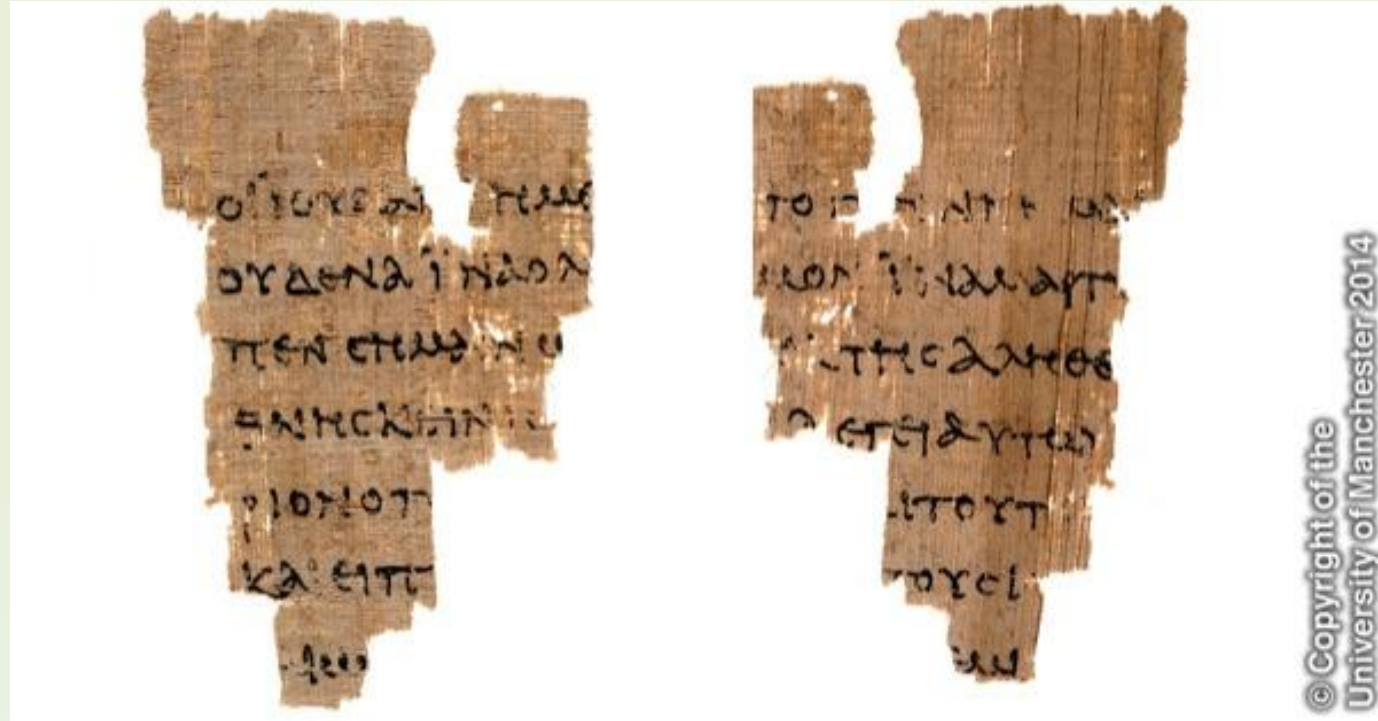 ΟΙ ΙΟΥΔΑΙ ΗΜΕ
ΟΥΔΕΝΑ ΙΝΑ Ο Λ
ΠΕΝ ϹΗΜΑΙΝω
ΘΝΗϹΚΕΙΝ ΙϹ
ΡΙΟΝ Ο Π
ΚΑΙ ΕΙΠ
ΤΟ
ΜΟΝ ΙΝΑ ΜΑΡΤ
ΤΗϹ ΑΛΗΘΕ
ΛΕΓΕΙ ΑΥΤω
ΤΟΥΤ
ΤΟΥϹ Ι
© Copyright of the
University of Manchester 2014